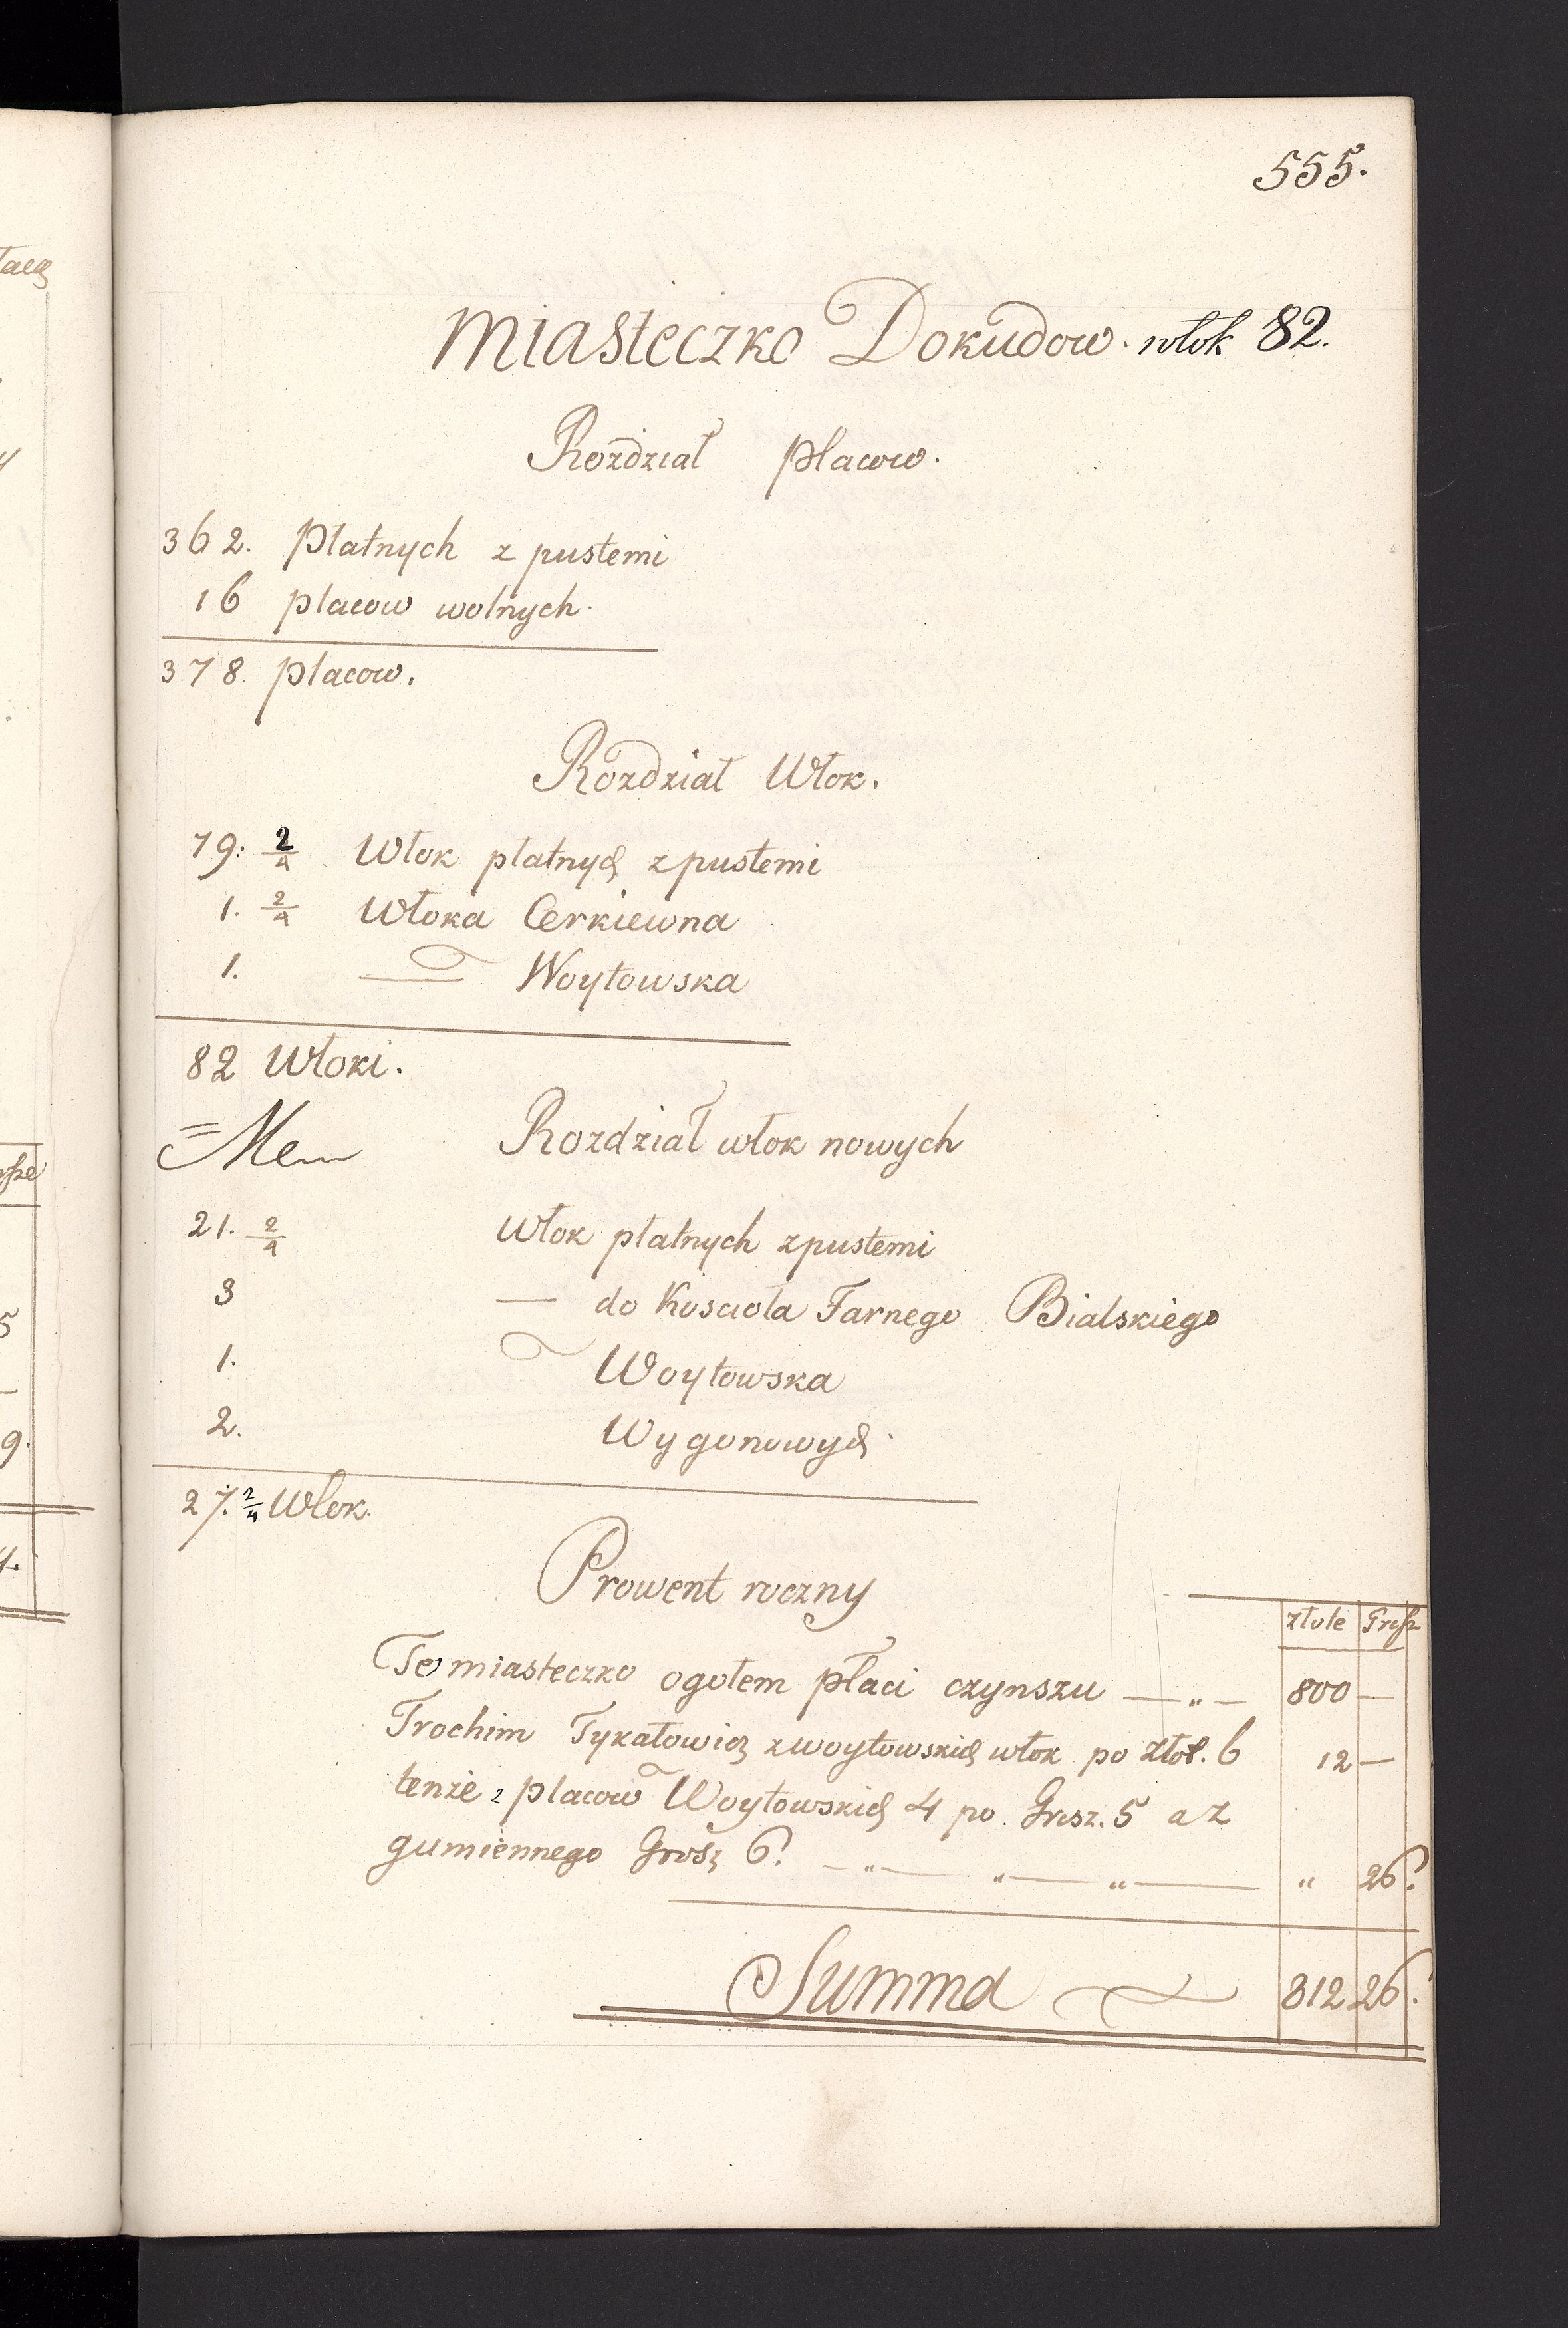 555.
Miasteczko Dokudow. włok 82.
Rozdział placow.
362. Płatnych z pustemi
16 placow wolnych.
378. placow.
Rozdział Włok.
79: 2/4 Włok płatnych z pustemi
1. 2/4 Włoka Cerkiewna
1. — Woytowska
82 Włoki.
Rozdział włok nowych
21. 2/4 Włok płatnych z pustemi
3 — do Koscioła Farnego Bialskiego
1. Woytowska
2. Wygonowych.
27. 2/4 Włok.
Prowent roczny
złote Grosz
Te miasteczko ogołem płaci czynszu — „ — 800 —
Trochim Tykałowicz z woytowskich włok po złot. 6 12 —
tenże z placow Woytowskich 4 po Grosz. 5 a z
gumiennego Grosz 6. — „ — „ — „ — „ 26.
Summa 812 26.